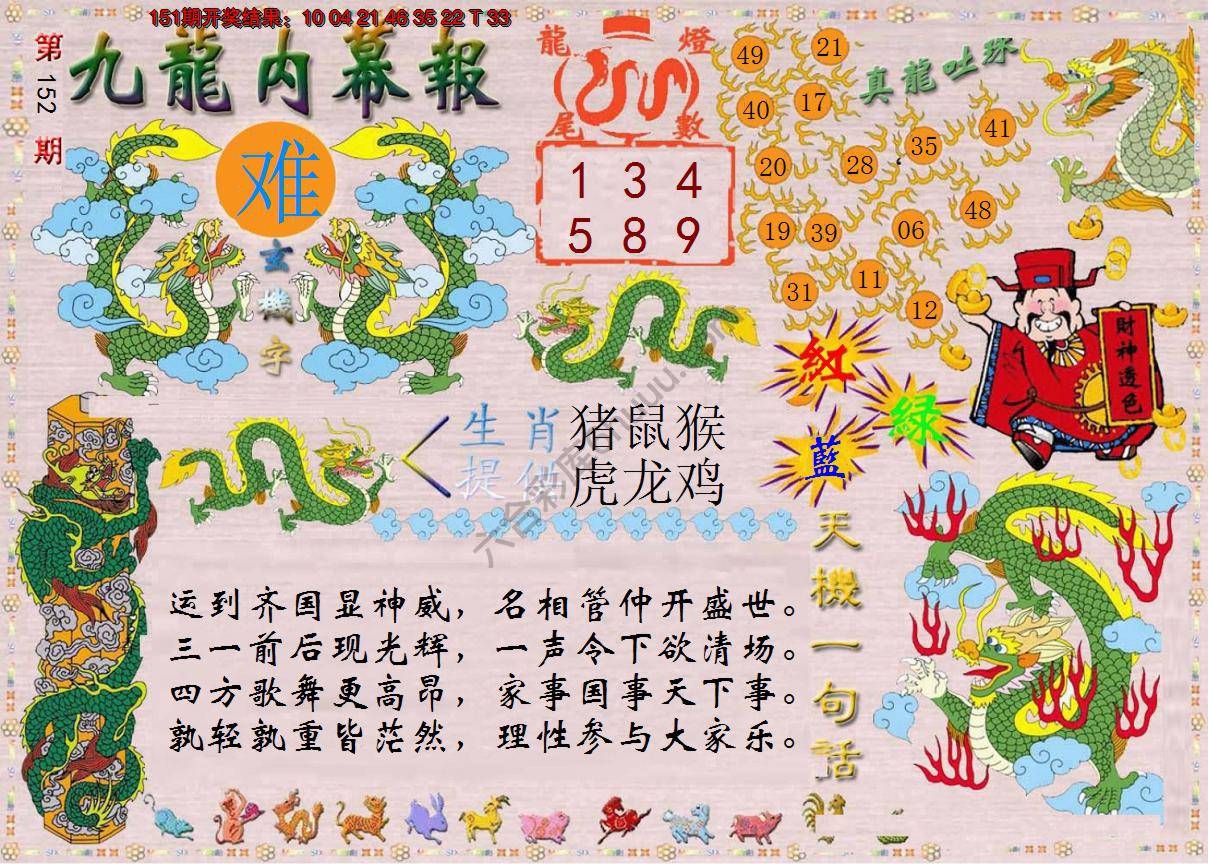 151期开奖结果：10 04 21 46 35 22 T 33
第152期
九龍内幕報
难
玄機字
龍燈
尾數
1 3 4
5 8 9
真龍吐珠
49 21
40 17
20 28 35 41
19 39 06 48
31 11 12
財神透色
紅
綠
藍
生肖
提供
猪鼠猴
虎龙鸡
天機一句話
运到齐国显神威，名相管仲开盛世。
三一前后现光辉，一声令下欲清场。
四方歌舞更高昂，家事国事天下事。
孰轻孰重皆茫然，理性参与大家乐。